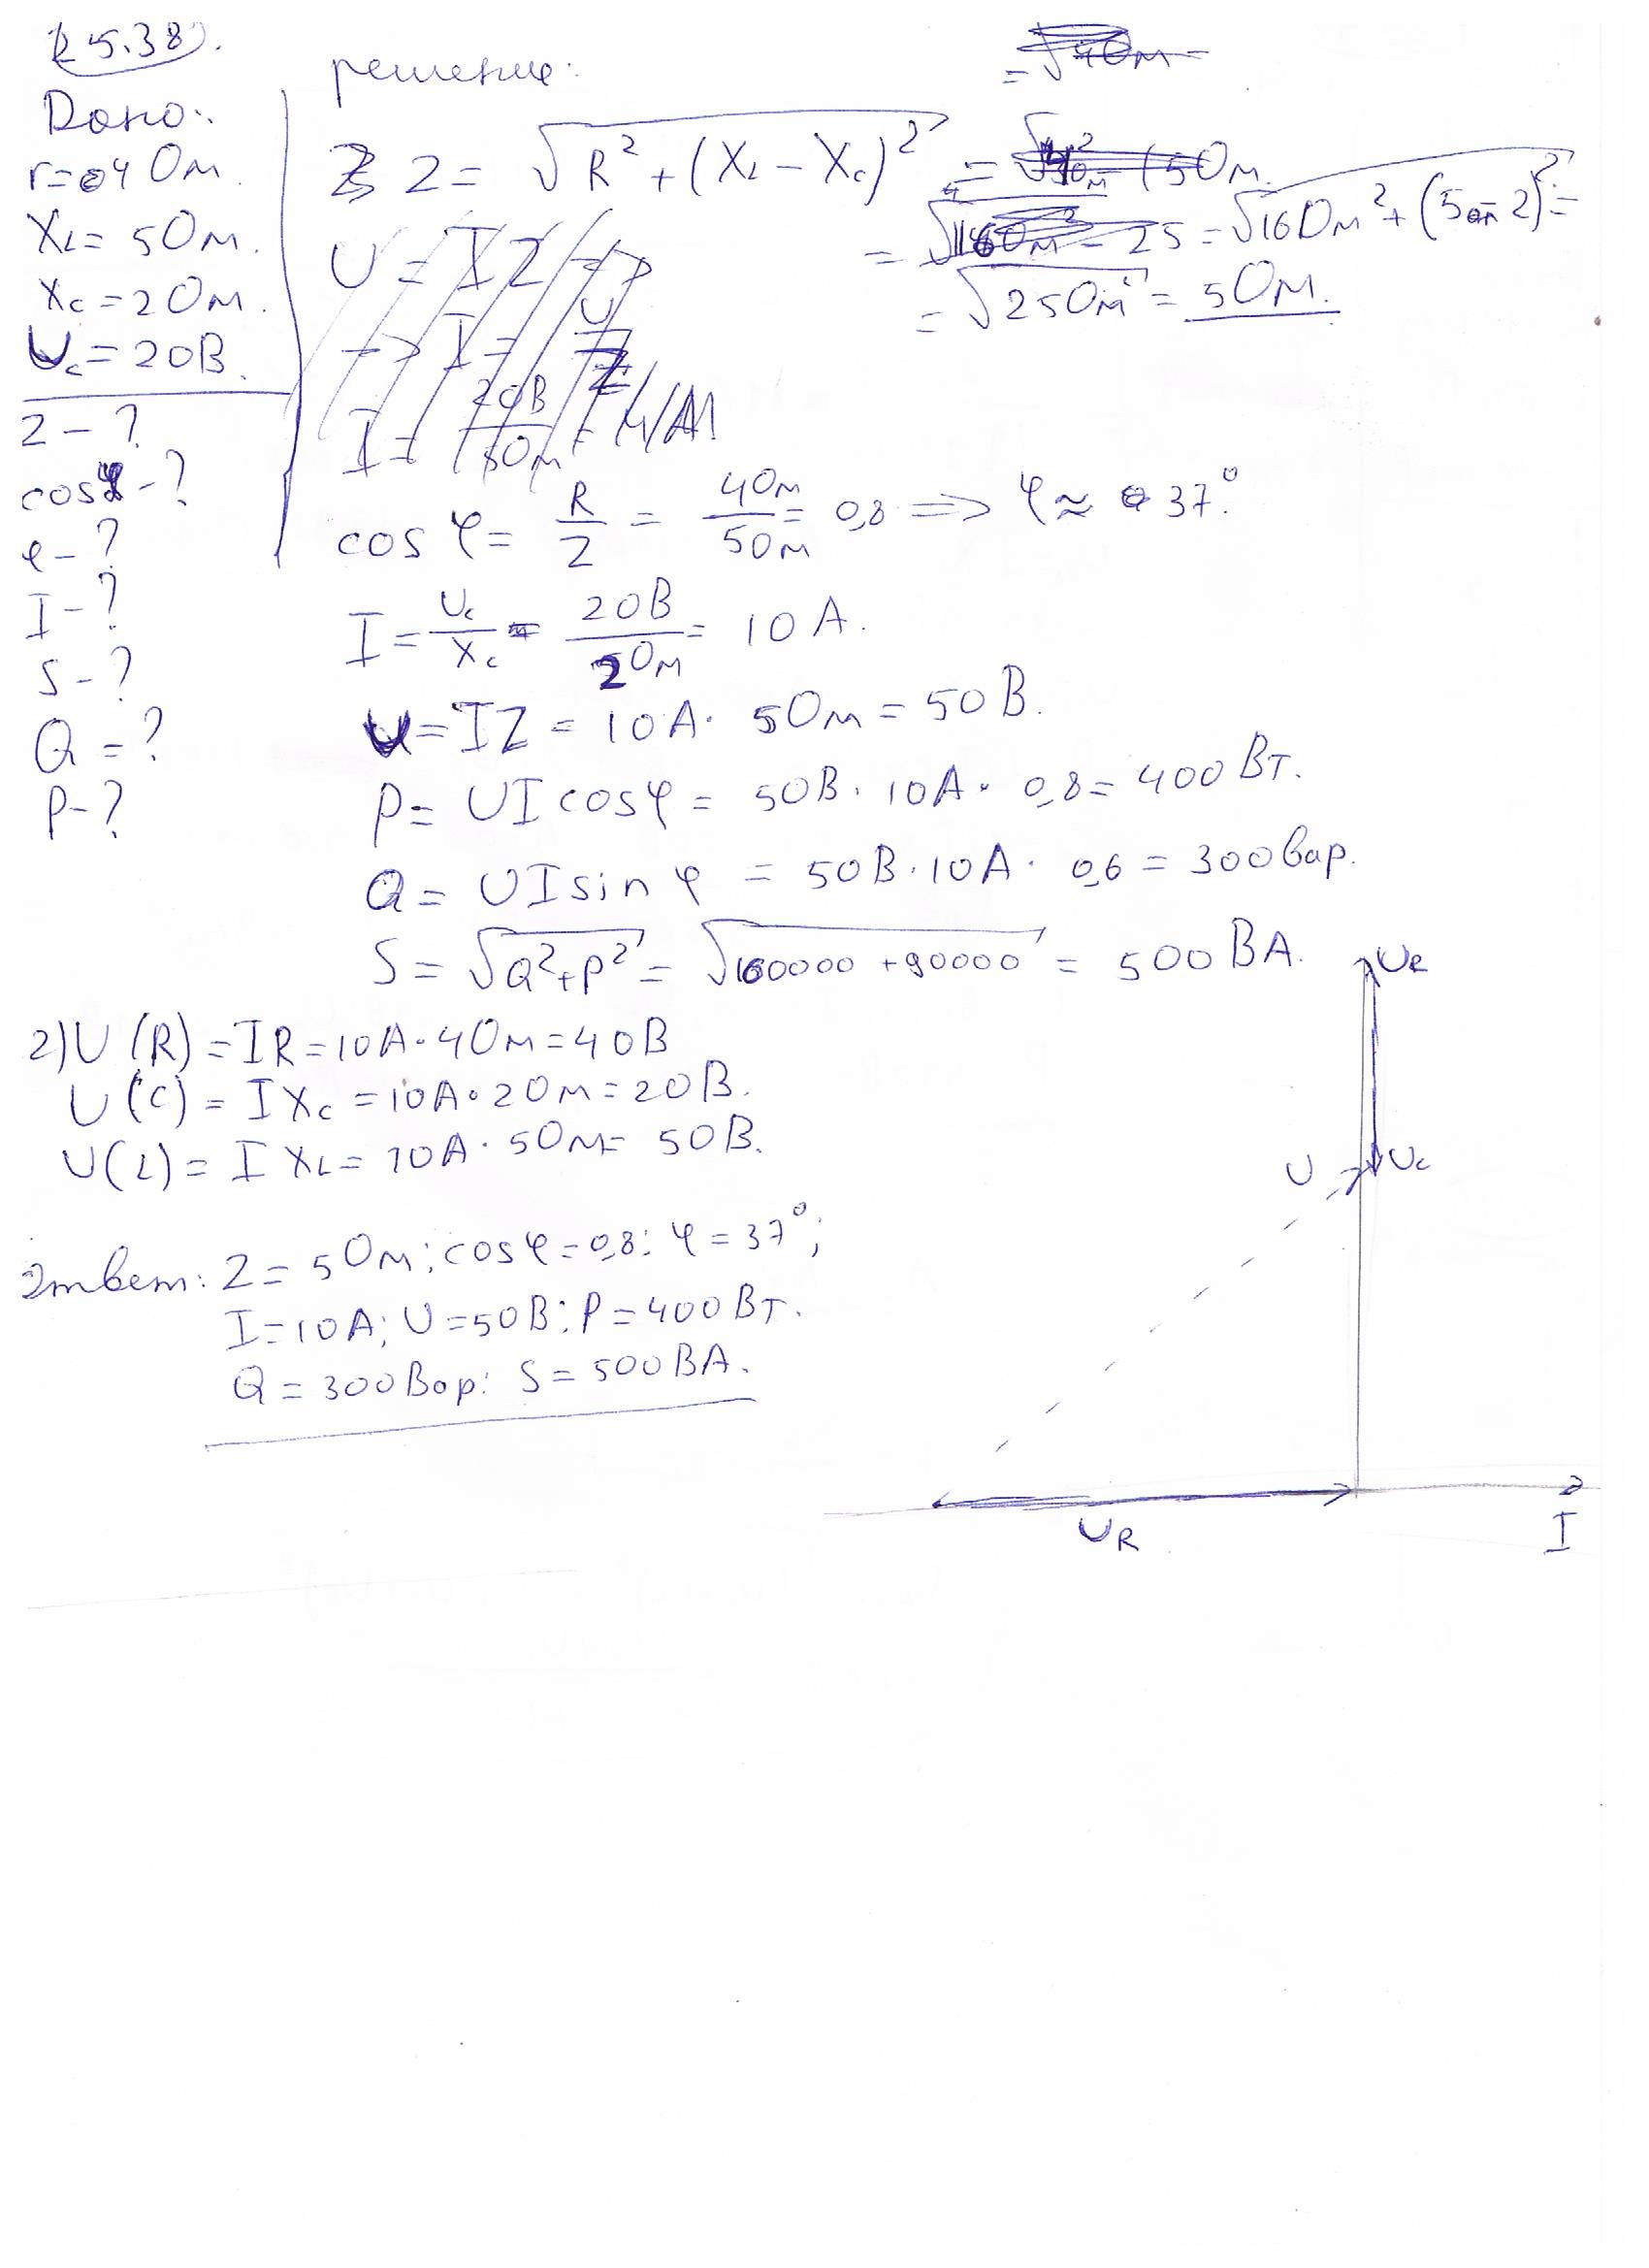 25.38).
Дано:
r=4 Ом.
XL= 5Ом.
Xc=2Ом.
Uc=20В.
Z-?
cosφ-?
φ-?
I-?
S-?
Q=?
P-?
решение:
Z = √R²+(XL-Xc)² = √16Ом²+(5-2)² =
= √25Ом² = 5Ом.
U = IZ =>
-> I = U/Z
cos φ= R/Z = 4Ом/5Ом = 0,8 => φ ≈ 37°.
I = Uc/Xc = 20В/2Ом = 10 А.
U=IZ = 10А· 5Ом = 50В.
P= UI cosφ = 50В· 10А· 0,8= 400 Вт.
Q= UI sin φ = 50В·10А· 0,6 = 300вар.
S = √Q²+P² = √160000 +90000 = 500 ВА.
2)U (R) = IR=10А·4Ом=40В
U (C) = I Xc =10А·2Ом=20В.
U(L) = I XL= 10А· 5Ом= 50В.
Ответ: Z= 5Ом; cosφ=0,8; φ=37°;
I=10А; U=50В; P=400Вт.
Q=300Вар; S=500ВА.
Uc
U
UR
I